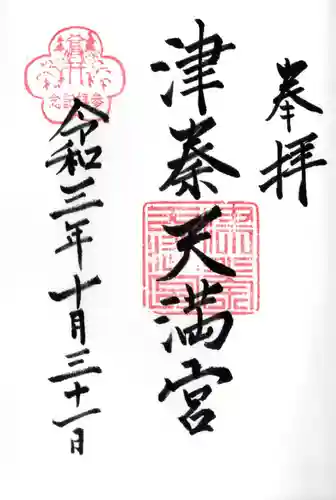 奉拝
津秦天満宮
令和三年十月三十一日